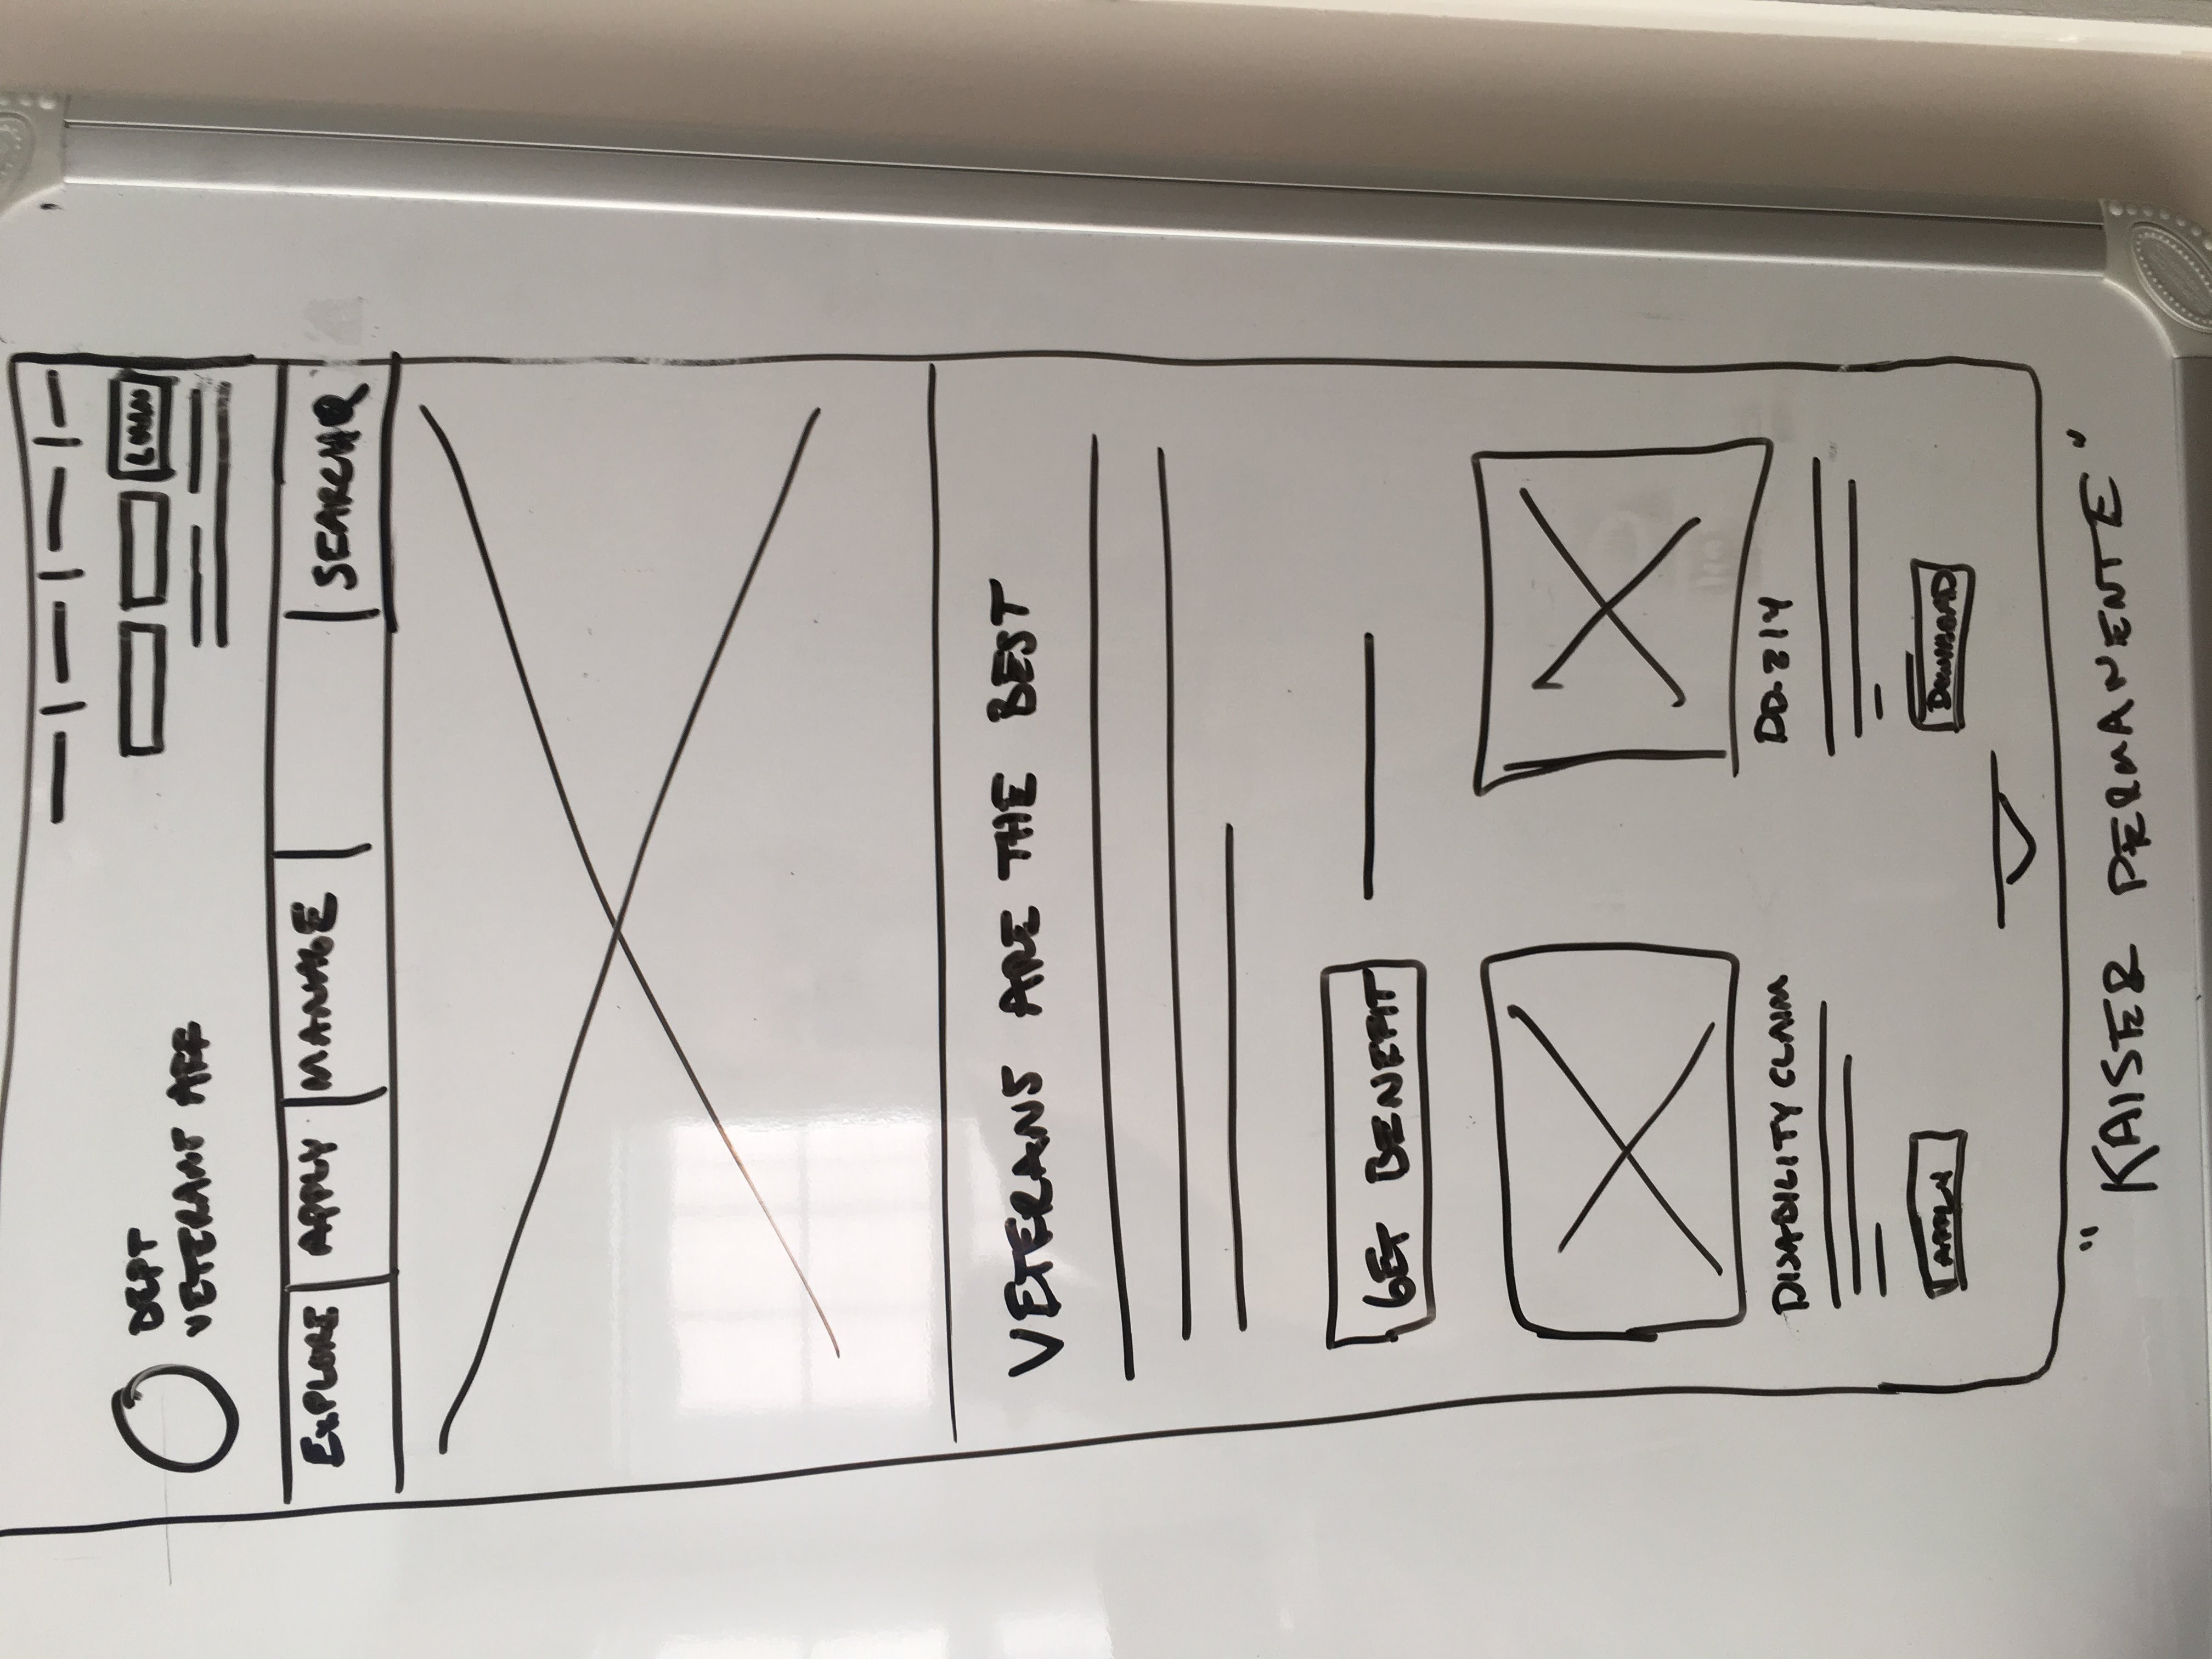 DEPT
VETERANT AFF
LOGIN
EXPLORE APPLY MANAGE SEARCH
VETERANS ARE THE BEST
GET BENEFIT
DISABILITY CLAIM DD.214
APPLY DOWNLOAD
"KAISER PERMANENTE"